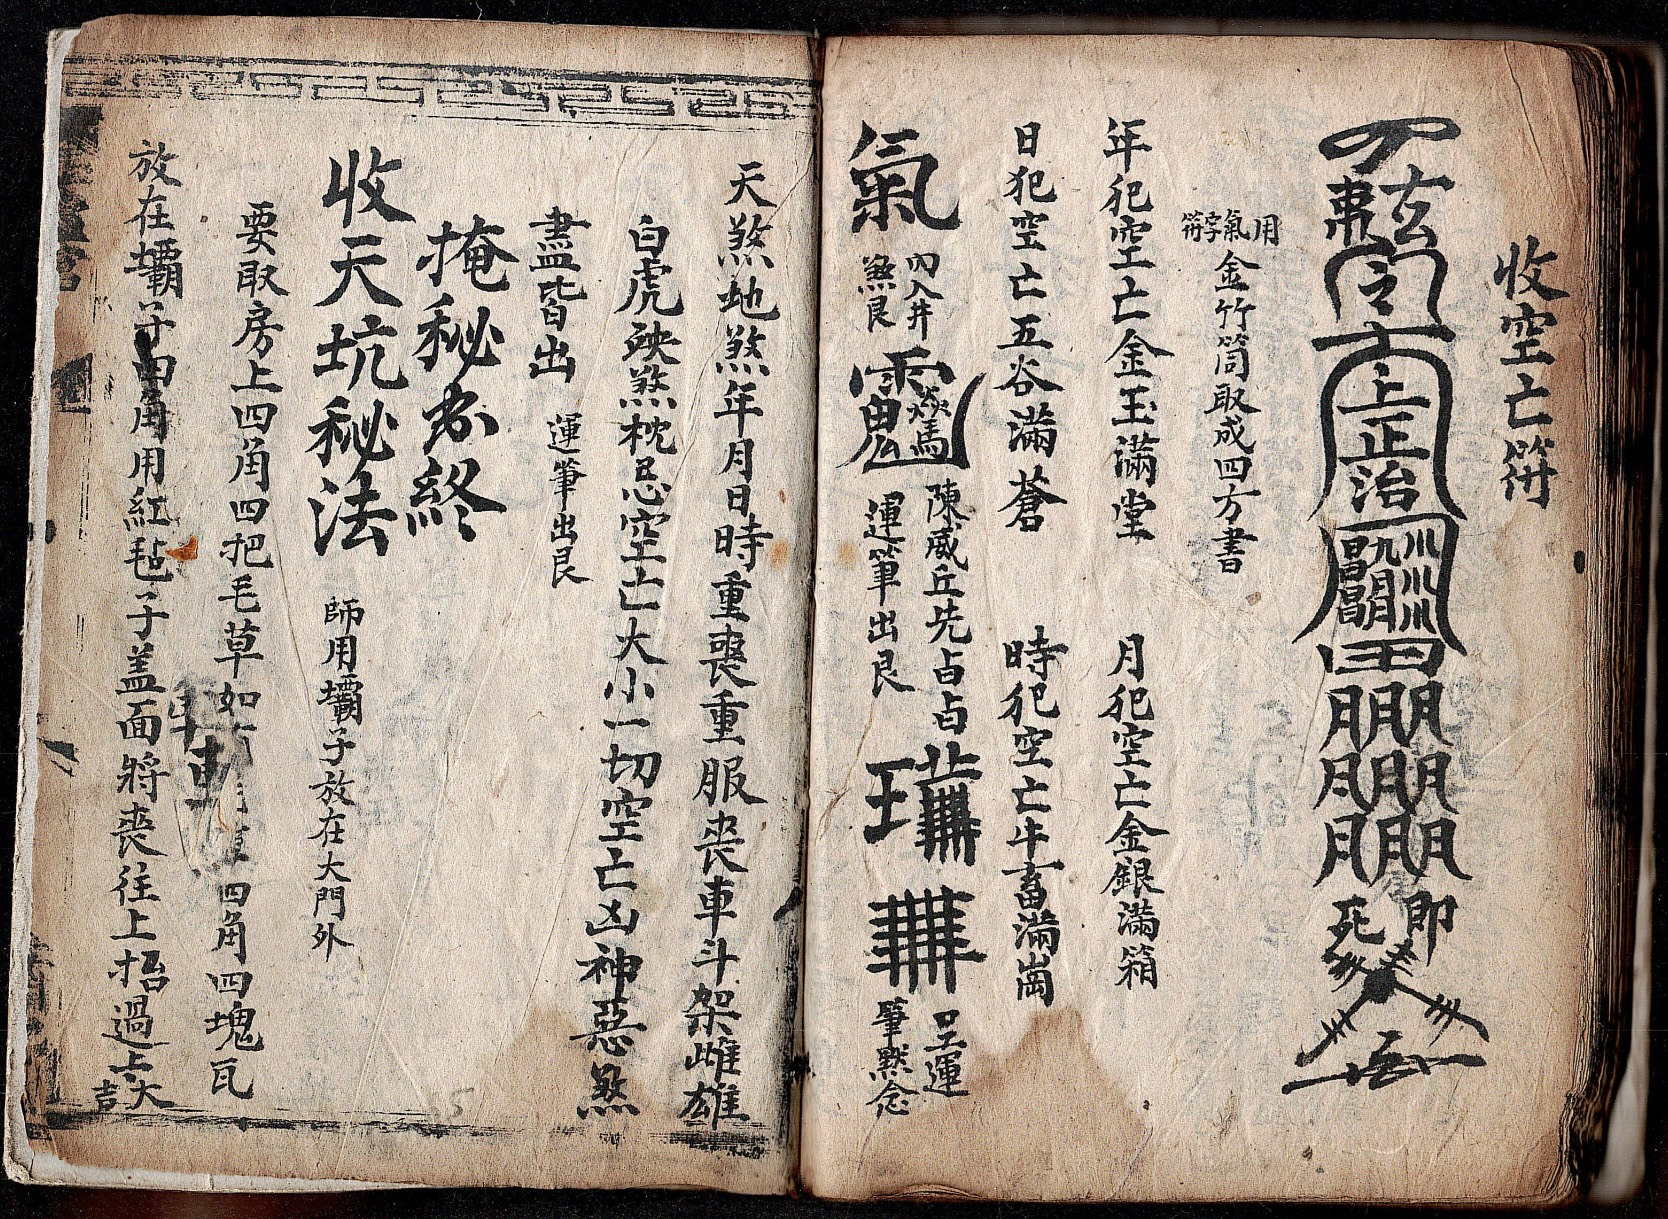 收空亡符
玄
令
上正治
即
死
用氣字符
金竹筒取成四方書
年犯空亡金玉滿堂　月犯空亡金銀滿箱
日犯空亡五谷滿蒼　時犯空亡牛畜滿崗
氣
內入井
煞艮
陳威丘先占占
運筆出艮
呈運
筆默念
天煞地煞年月日時重喪重服喪車斗架雌雄
白虎殃煞枕忌空亡大小一切空亡凶神惡煞
盡皆出　運筆出艮
掩秘終
收天坑秘法　師用壩子放在大門外
要取房上四角四把毛草如 四角四塊瓦
放在壩子四角用紅毡子盖面將喪往上抬過去大吉